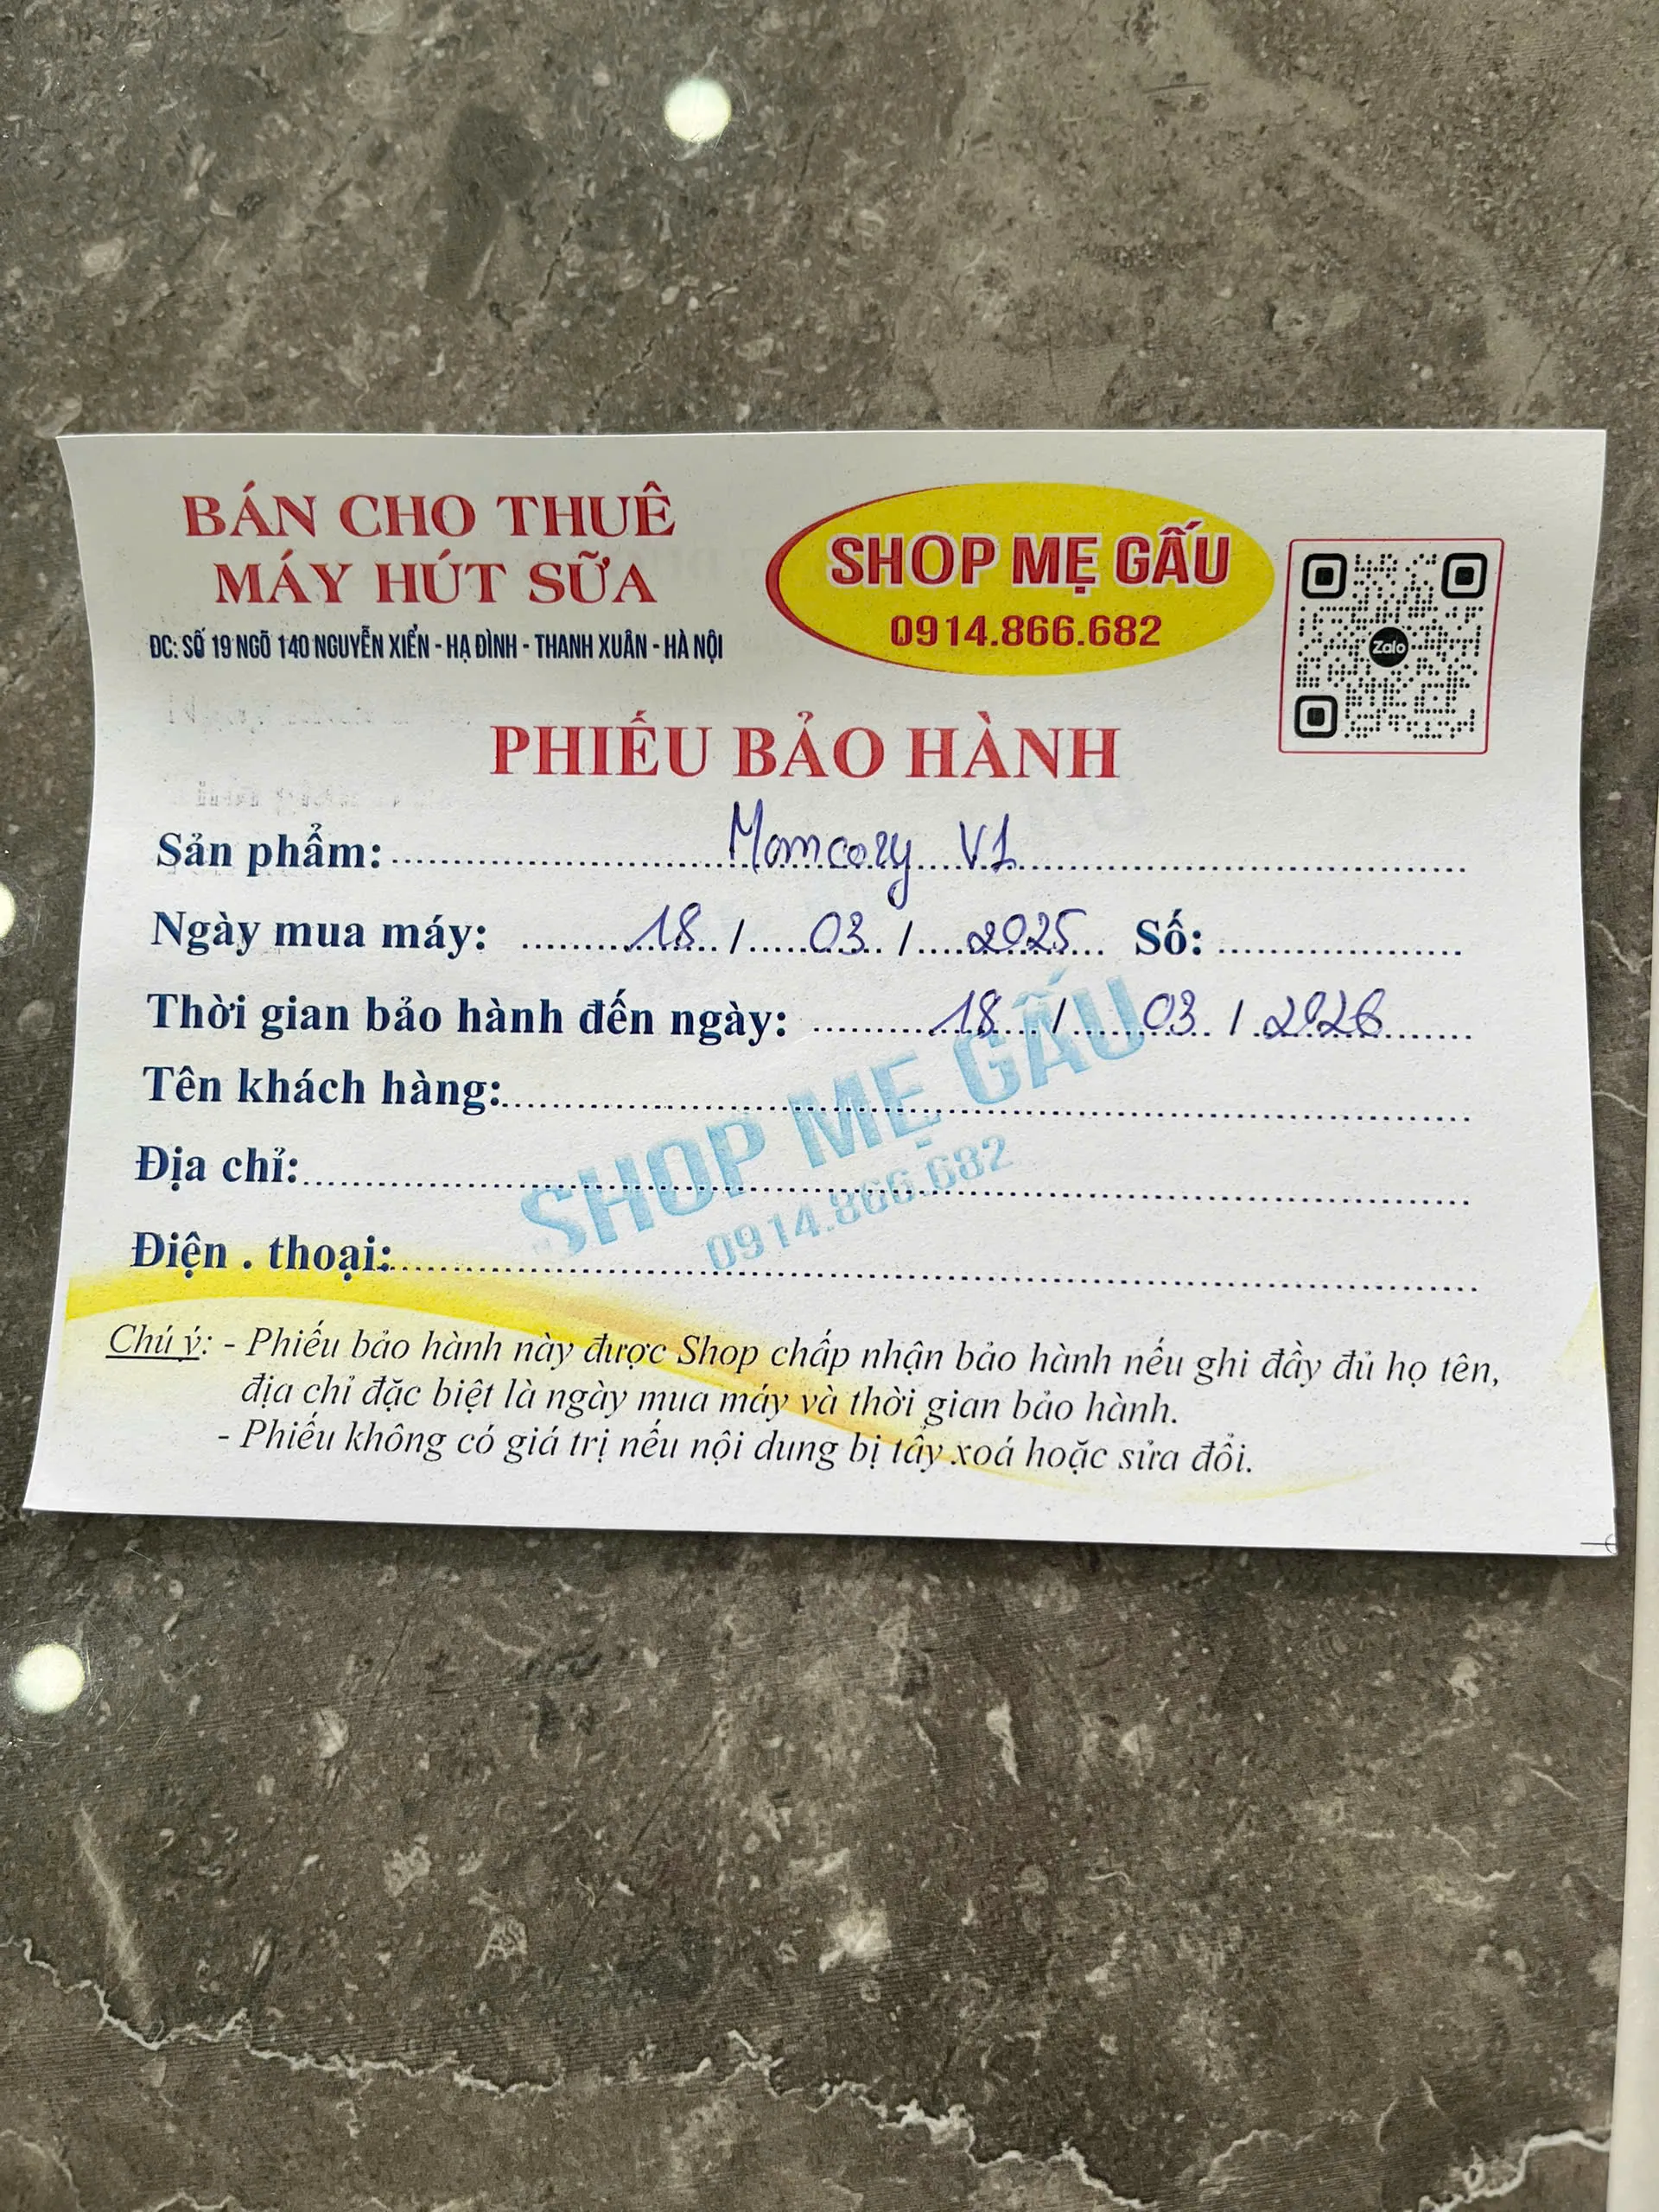 BÁN CHO THUÊ
MÁY HÚT SỮA
ĐC: SỐ 19 NGÕ 140 NGUYỄN XIỂN - HẠ ĐÌNH - THANH XUÂN - HÀ NỘI
SHOP MẸ GẤU
0914.866.682
Zalo
PHIẾU BẢO HÀNH
Sản phẩm: Momcozy V1
Ngày mua máy: 18 / 03 / 2025 Số:
Thời gian bảo hành đến ngày: 18 / 03 / 2026
Tên khách hàng:
Địa chỉ:
Điện . thoại:
SHOP MẸ GẤU
0914.866.682
Chú ý: - Phiếu bảo hành này được Shop chấp nhận bảo hành nếu ghi đầy đủ họ tên,
địa chỉ đặc biệt là ngày mua máy và thời gian bảo hành.
- Phiếu không có giá trị nếu nội dung bị tẩy xoá hoặc sửa đổi.